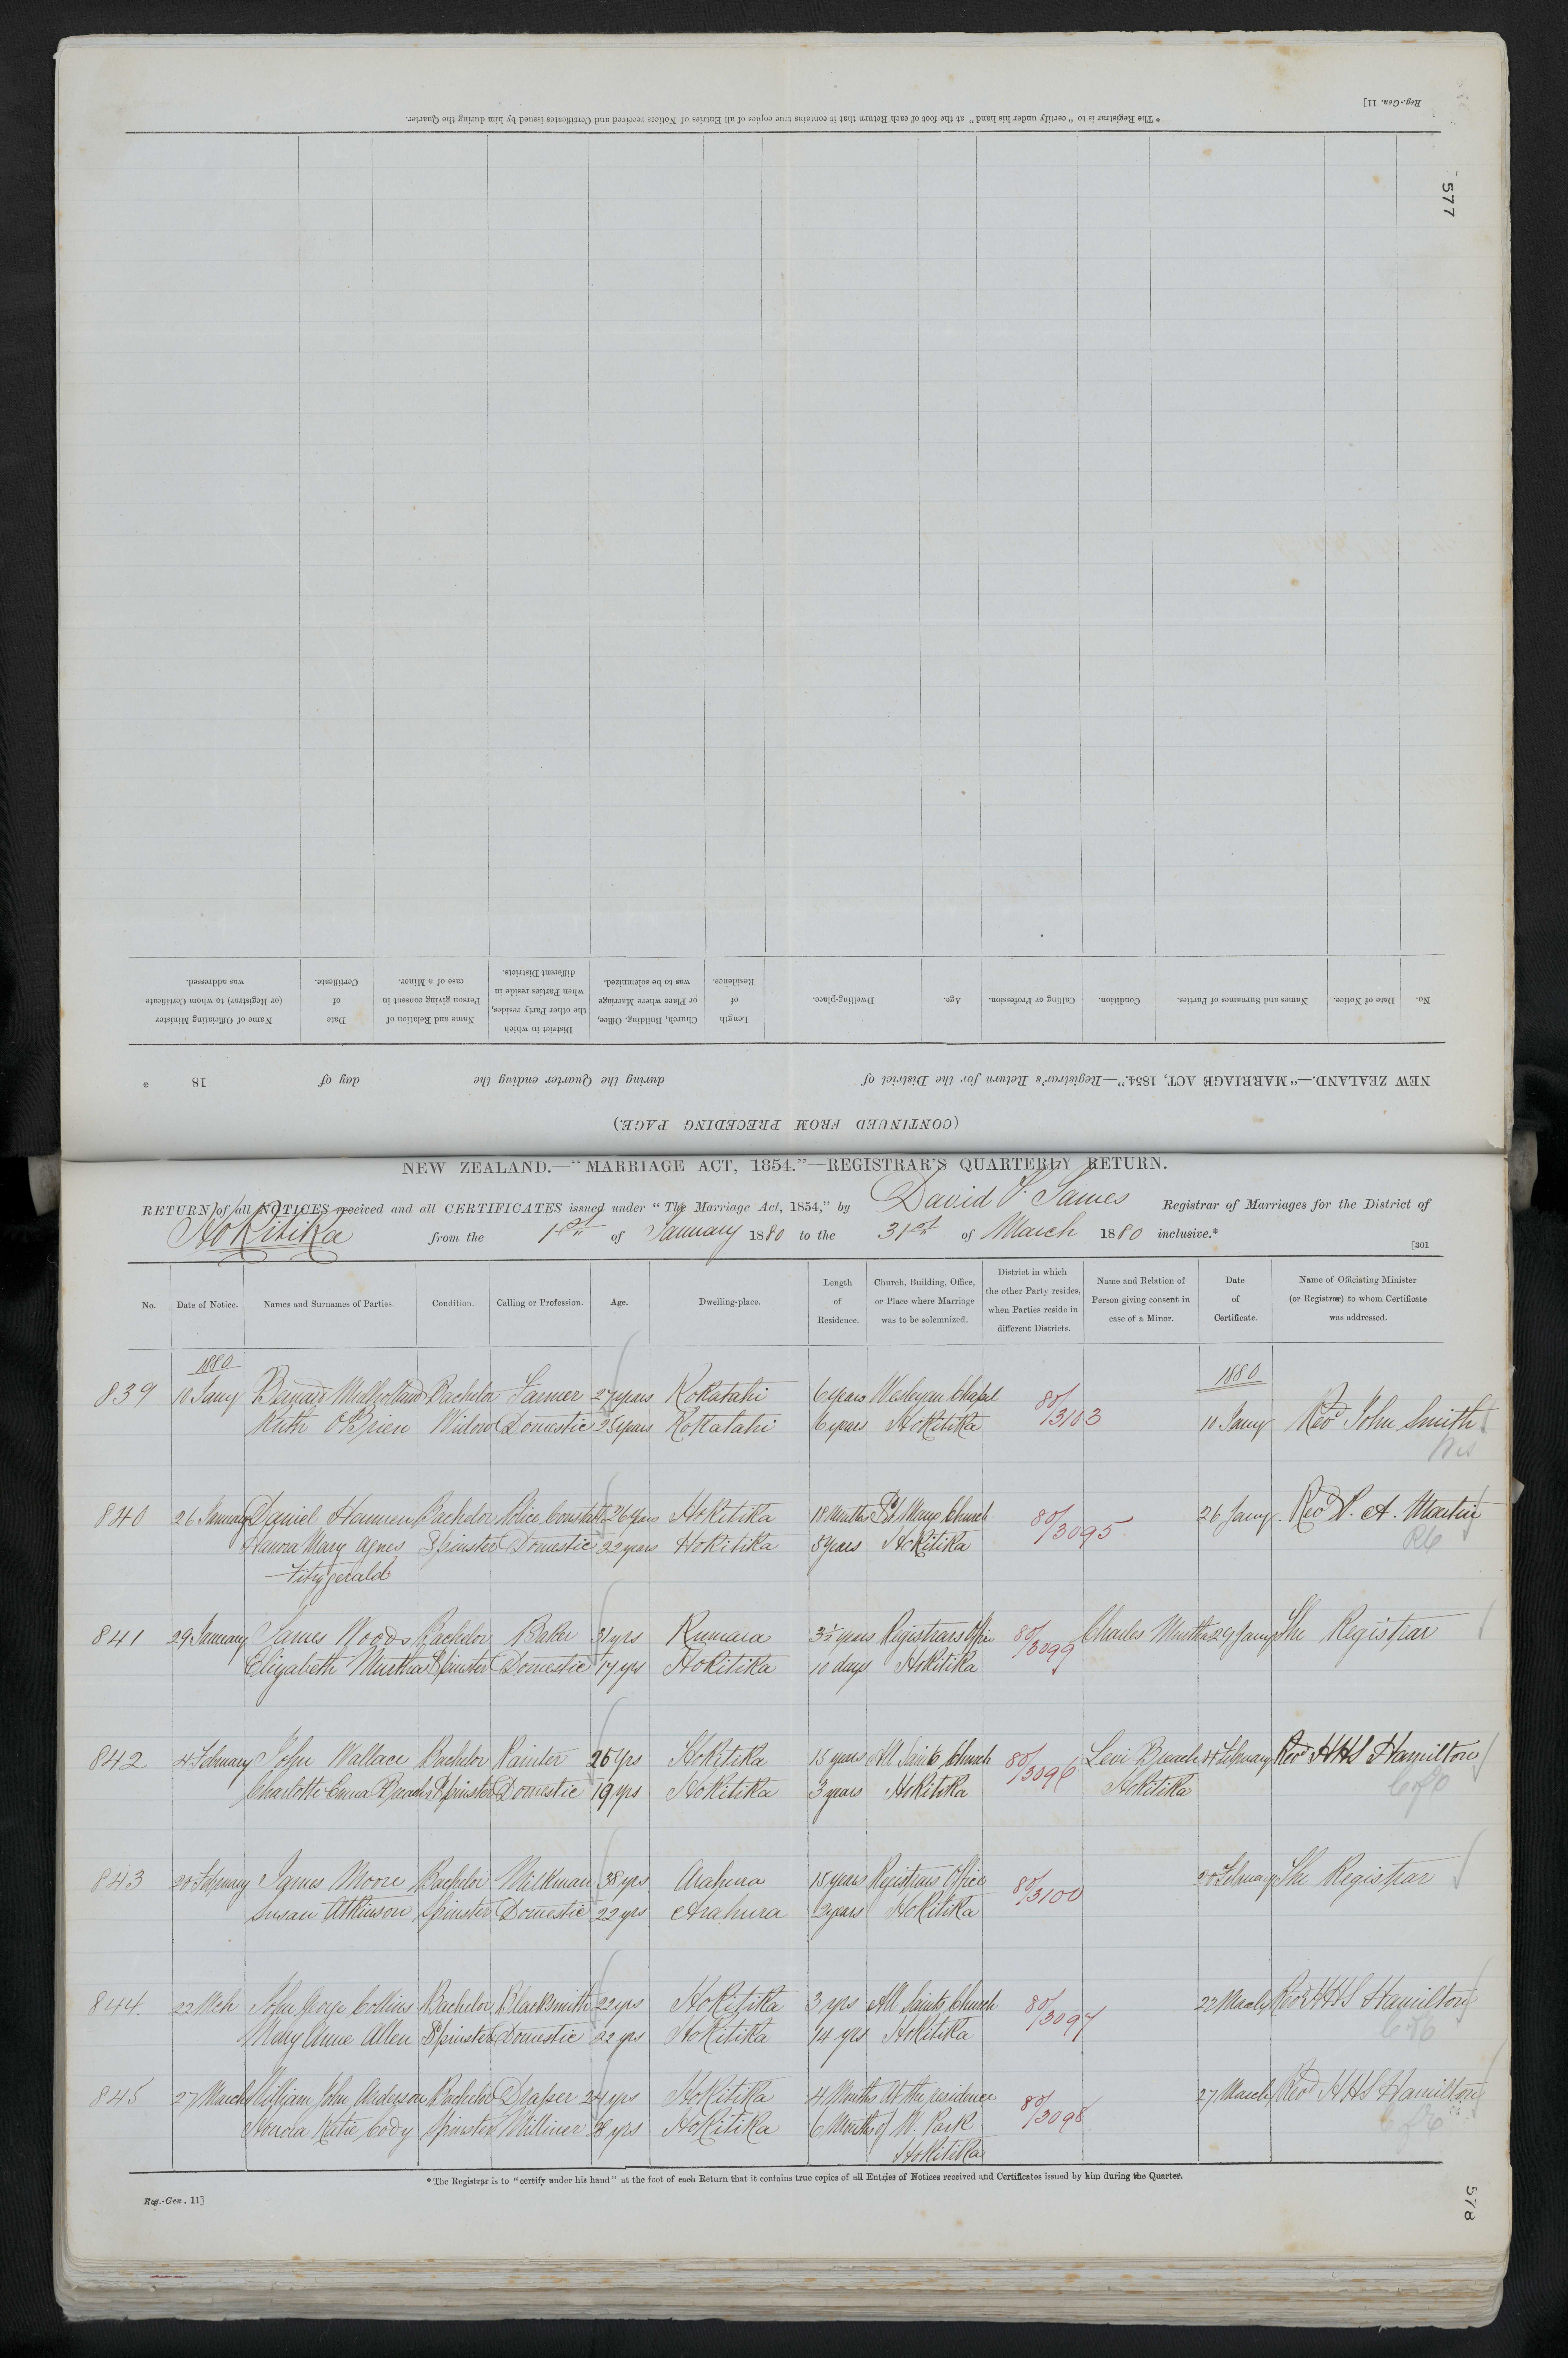 Reg.-Gen. 11]
* The Registrar is to "certify under his hand" at the foot of each Return that it contains true copies of all Entries of Notices received and Certificates issued by him during the Quarter.
577
No. Date of Notice. Names and Surnames of Parties. Condition. Calling or Profession. Age. Dwelling-place. Length of Residence. Church, Building, Office, or Place where Marriage was to be solemnized. District in which the other Party resides, when Parties reside in different Districts. Name and Relation of Person giving consent in case of a Minor. Date of Certificate. Name of Officiating Minister (or Registrar) to whom Certificate was addressed.
NEW ZEALAND.—"MARRIAGE ACT, 1854."—Registrar's Return for the District of during the Quarter ending the day of 18 *
(CONTINUED FROM PRECEDING PAGE.)
NEW ZEALAND.—"MARRIAGE ACT, 1854."—REGISTRAR'S QUARTERLY RETURN.
RETURN of all NOTICES received and all CERTIFICATES issued under "The Marriage Act, 1854," by David T. James Registrar of Marriages for the District of
Hokitika from the 1st of January 1880 to the 31st of March 1880 inclusive.*
[301
No. Date of Notice. Names and Surnames of Parties. Condition. Calling or Profession. Age. Dwelling-place. Length of Residence. Church, Building, Office, or Place where Marriage was to be solemnized. District in which the other Party resides, when Parties reside in different Districts. Name and Relation of Person giving consent in case of a Minor. Date of Certificate. Name of Officiating Minister (or Registrar) to whom Certificate was addressed.
1880 1880
839 10 Jany Bernard Mulholland Bachelor Farmer 27 years Kokatahi 6 years Wesleyan Chapel 80/3103
Ruth O'Brien Widow Domestic 25 years Kokatahi 6 years Hokitika 10 Jany Revd John Smith
Wes
840 26 January Daniel Hannen Bachelor Police Constable 26 years Hokitika 18 Months St Marys Church 80/3095 26 Jany. Revd P. A. Martin
Hanora Mary Agnes Spinster Domestic 22 years Hokitika 8 years Hokitika RC
Fitzgerald
841 29 January James Woods Bachelor Baker 31 yrs Kumara 3½ years Registrars Office 80/3099 Charles Murtha 29 Jany The Registrar
Elizabeth Murtha Spinster Domestic 17 yrs Hokitika 10 days Hokitika
842 4 February John Wallace Bachelor Painter 26 yrs Hokitika 15 years All Saints Church 80/3096 Levi Breach 4 February Revd HHS Hamilton
Charlotte Emma Breach Spinster Domestic 19 yrs Hokitika 3 years Hokitika Hokitika C of E
843 20 February James Moore Bachelor Milkman 38 yrs Arahura 15 years Registrars Office 80/3100 20 February The Registrar
Susan Atkinson Spinster Domestic 22 yrs Arahura 2 years Hokitika
844 22 Mch John George Collins Bachelor Blacksmith 22 yrs Hokitika 3 yrs All Saints Church 80/3097 22 March Revd HHS Hamilton
Mary Anne Allen Spinster Domestic 22 yrs Hokitika 14 yrs Hokitika C of E
845 27 March William John Anderson Bachelor Draper 24 yrs Hokitika 4 Months At the residence 80/3098 27 March Revd HHS Hamilton
Honora Katie Cody Spinster Milliner yrs Hokitika 6 Months of W. Park C of E
Hokitika
* The Registrar is to "certify under his hand" at the foot of each Return that it contains true copies of all Entries of Notices received and Certificates issued by him during the Quarter.
Reg.-Gen. 11]
578